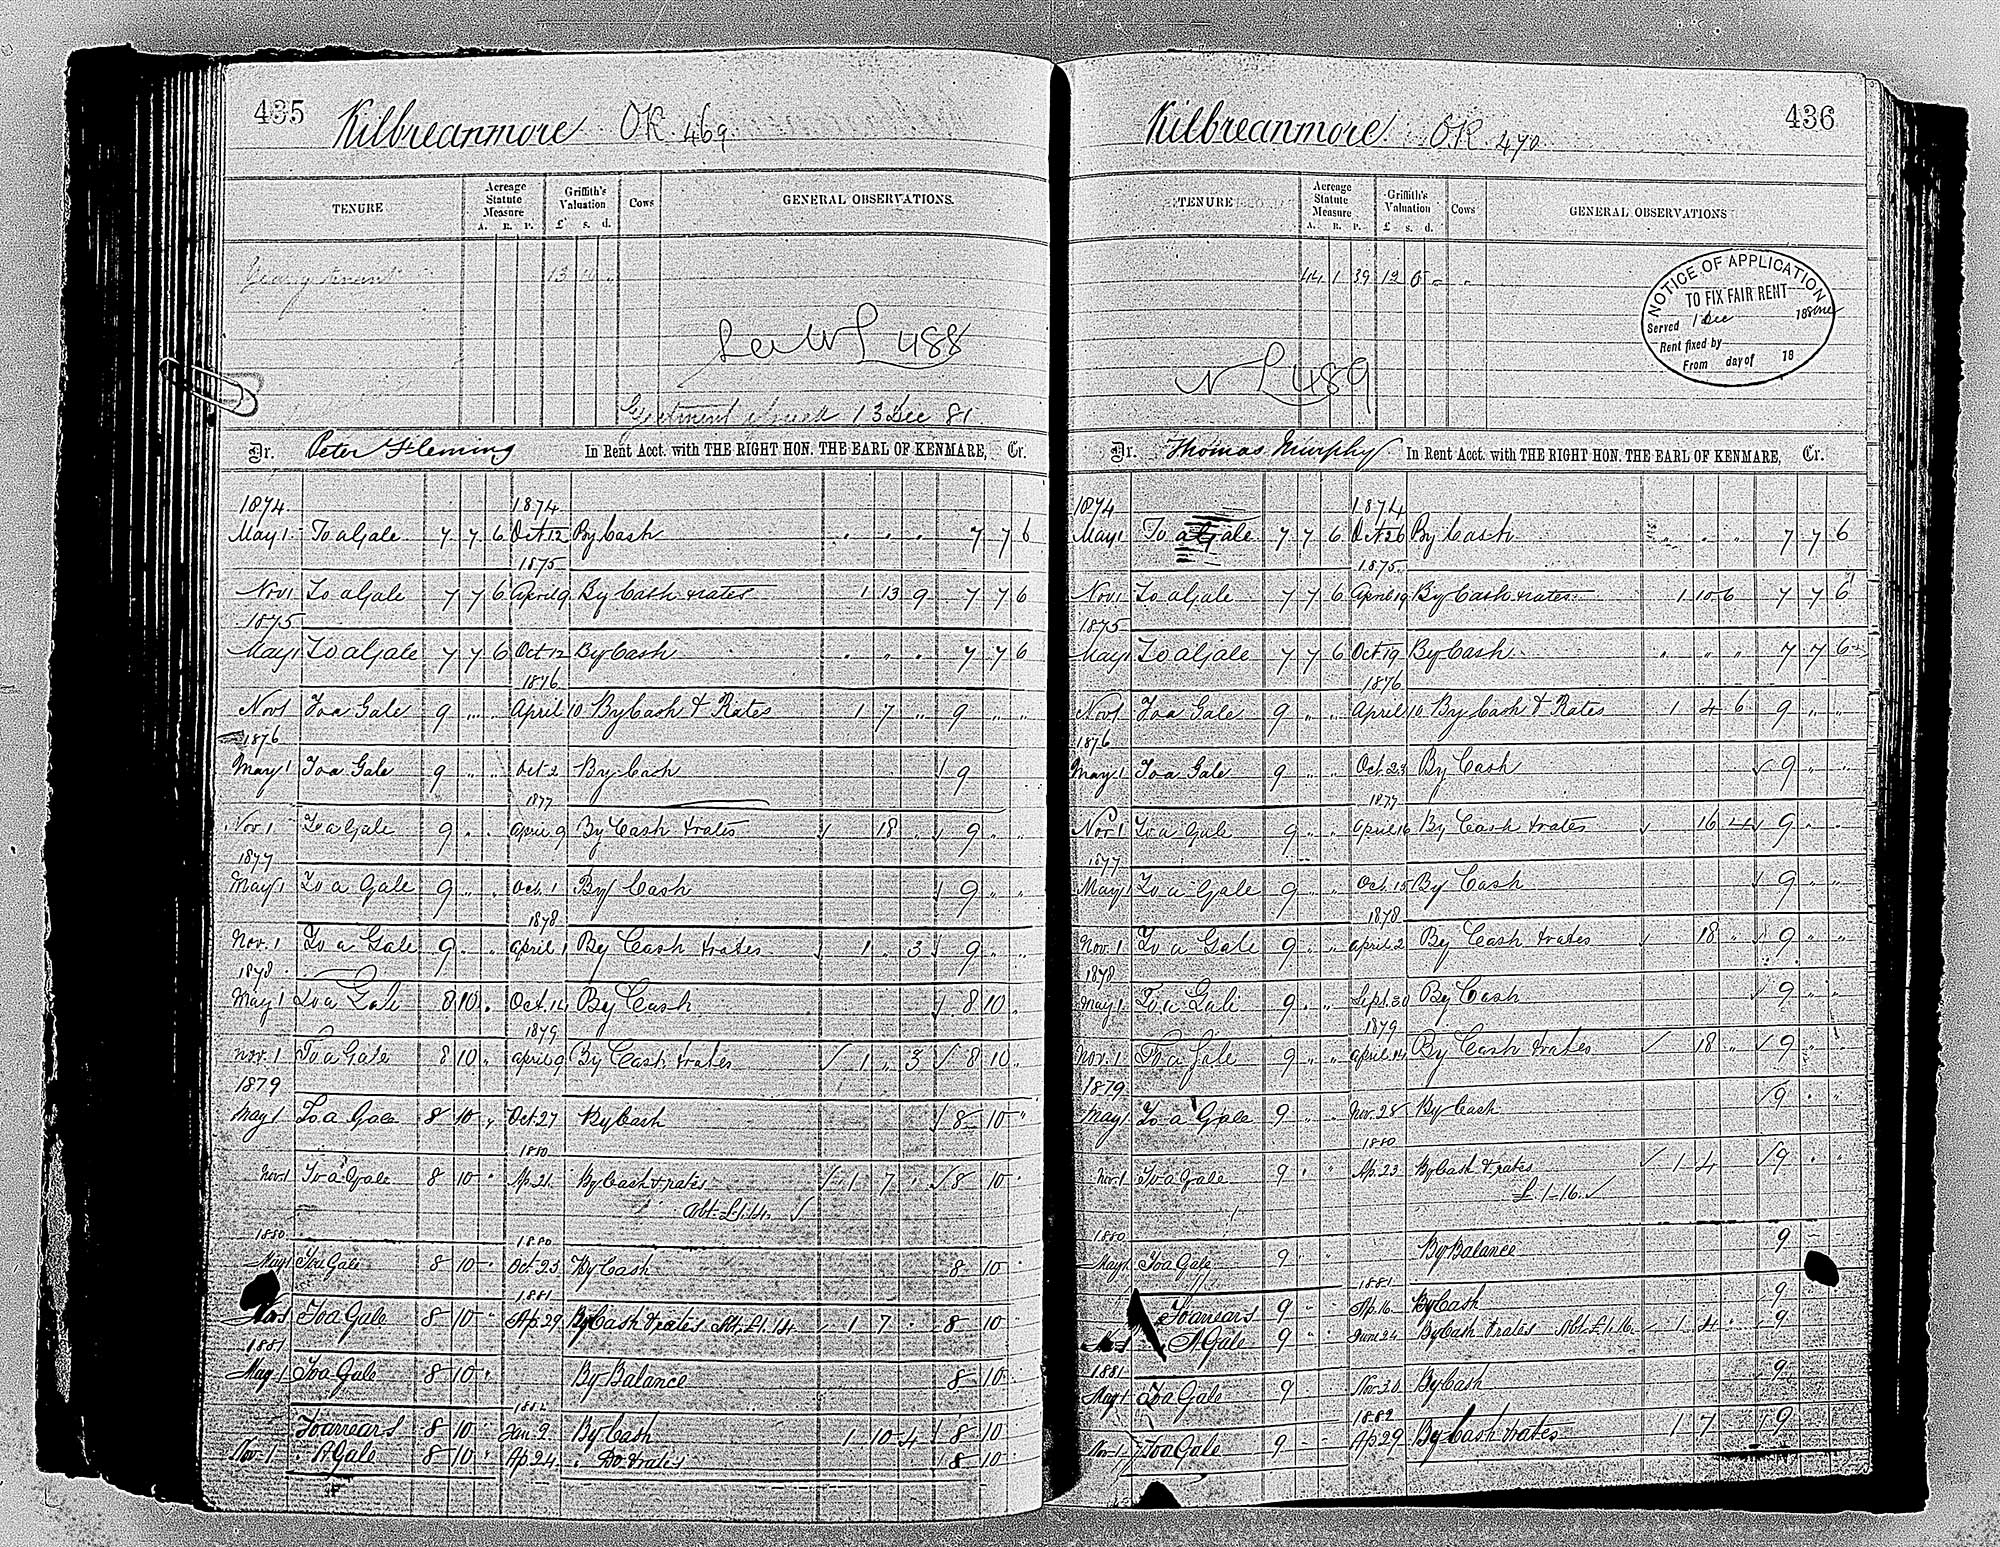 435 Kilbreanmore OR 469
TENURE Acreage Statute Measure A. R. P. Griffith's Valuation £ s. d. Cows GENERAL OBSERVATIONS.
13
L 488
Ejectment 13 Dec 81.
Dr. Peter Fleming In Rent Acct. with THE RIGHT HON. THE EARL OF KENMARE, Cr.
1874. 1874
May 1. To a Gale 7 7 6 Oct 12 By Cash " " " 7 7 6
1875
Nov 1 To a Gale 7 7 6 April 9 By Cash & rates 1 13 9 7 7 6
1875
May 1 To a Gale 7 7 6 Oct 12 By Cash " " " 7 7 6
1876
Nov 1 To a Gale 9 " " April 10 By Cash & Rates 1 7 " 9 " "
1876
May 1 To a Gale 9 " " Oct 2 By Cash 9
1877
Nov 1 To a Gale 9 " " April 9 By Cash & rates 18 " 9 " "
1877
May 1 To a Gale 9 " " Oct. 1 By Cash 9 " "
1878
Nov. 1 To a Gale 9 " " April 1 By Cash & rates 1 " 3 9 " "
1878
May 1 To a Gale 8 10 " Oct. 14 By Cash 8 10 "
1879
Nov. 1 To a Gale 8 10 " April 9 By Cash & rates 1 " 3 8 10 "
1879
May 1 To a Gale 8 10 " Oct. 27 By Cash 8 10 "
1880
Nov 1 To a Gale 8 10 " Ap. 21. By Cash & rates 1 7 " 8 10 "
Abt. £1.14. √
1880 1880
May 1 To a Gale 8 10 " Oct. 23 By Cash 8 10 "
1881
Nov 1 To a Gale 8 10 " Ap. 29 By Cash & rates Abt. £1.14 1 7 " 8 10 "
1881
May 1 To a Gale 8 10 " By Balance 8 10 "
1882
To arrears 8 10 " Jan 2 By Cash 1 10 4 8 10
Nov. 1 " A Gale 8 10 " Ap 24. " Do. & rates 8 10 "
Kilbreanmore OR 470 436
TENURE Acreage Statute Measure A. R. P. Griffith's Valuation £ s. d. Cows GENERAL OBSERVATIONS
44 1 39 12 5 " "
NOTICE OF APPLICATION
TO FIX FAIR RENT
Served 1 Dec 188
Rent fixed by
From day of 18
N L 489
Dr. Thomas Murphy In Rent Acct. with THE RIGHT HON. THE EARL OF KENMARE, Cr.
1874 1874
May 1 To a Gale 7 7 6 Oct 26 By Cash " " " 7 7 6
1875
Nov 1 To a Gale 7 7 6 April 19 By Cash & rates 1 10 6 7 7 6
1875
May 1 To a Gale 7 7 6 Oct 19 By Cash " " " 7 7 6
1876
Nov 1 To a Gale 9 " " April 10 By Cash & Rates 1 4 6 9 " "
1876
May 1 To a Gale 9 " " Oct. 23 By Cash 9 " "
1877
Nov 1 To a Gale 9 " " April 16 By Cash & rates 16 4 9 " "
1877
May 1 To a Gale 9 " " Oct. 15 By Cash 9 " "
1878
Nov. 1 To a Gale 9 " " April 2 By Cash & rates 18 " 9 " "
1878
May 1. To a Gale 9 " " Sept. 30 By Cash 9 " "
1879
Nov. 1 To a Gale 9 " " April 14 By Cash & rates 18 " 9 " "
1879
May 1 To a Gale 9 " " Nov. 28 By Cash 9 " "
1880
Nov 1 To a Gale 9 " " Ap. 23 By Cash & rates 1 4 9 " "
£ 1-16. √
1880
May 1 To a Gale 9 " " By Balance 9 "
1881
To arrears 9 " " Ap. 16 By Cash 9 "
Nov 1 " A Gale 9 " " June 24 By Cash & rates Abt. £1.16. 1 4 " 9 "
1881
May 1 To a Gale 9 Nov. 30 By Cash 9
1882
Nov. 1 To a Gale 9 " " Ap 29 By Cash & rates 1 7 9